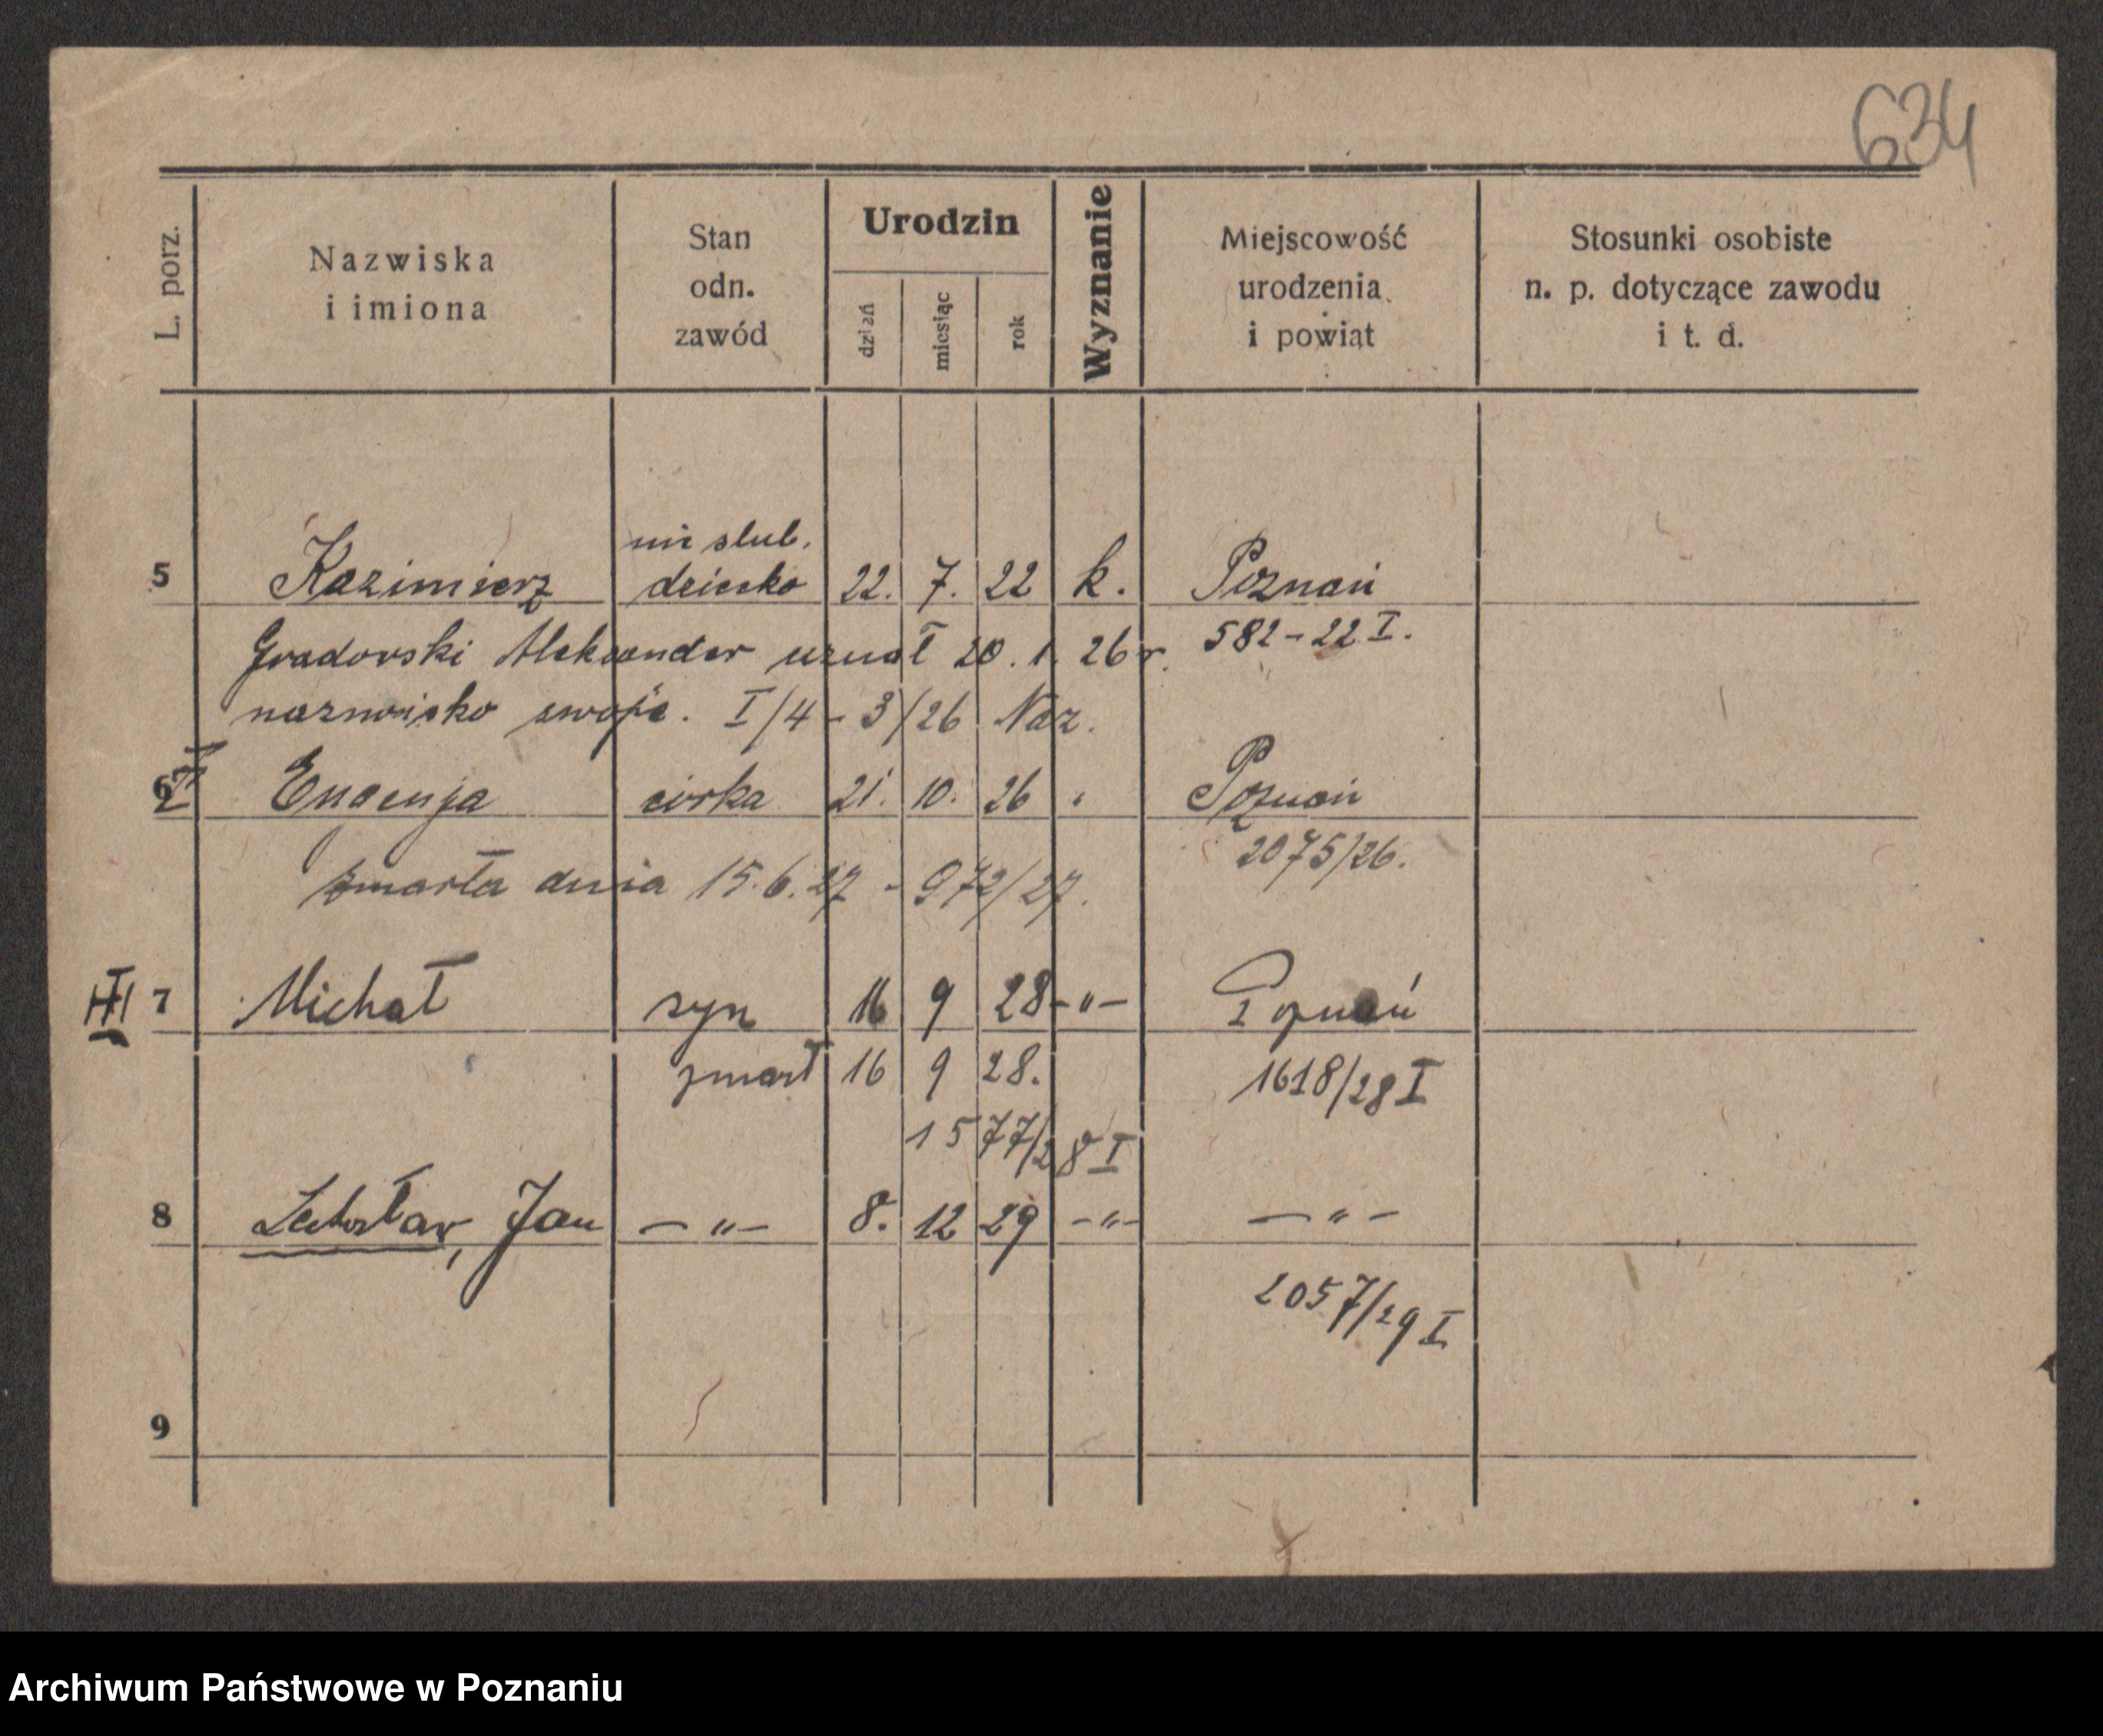 634
L. porz.
Nazwiska
i imiona
Stan
odn.
zawód
Urodzin
dzień
miesiąc
rok
Wyznanie
Miejscowość
urodzenia
i powiat
Stosunki osobiste
n. p. dotyczące zawodu
i t. d.
nieslub.
5 Kazimierz dziecko 22. 7. 22 k. Poznań
582-22 I.
Gradowski Aleksander uznał 20. 1. 26 r.
nazwisko swoje. I/4 - 3/26 Naz.
6 II Eugenja córka 21. 10. 26 " Poznań
2075/26.
zmarła dnia 15.6.27 - 972/27.
III 7 Michał syn 16 9 28 -"- Poznań
zmarł 16 9 28. 1618/28 I
1577/28 I
8 Lechosław, Jan -"- 8. 12 29 -"- -"-
2057/29 I
9
Archiwum Państwowe w Poznaniu